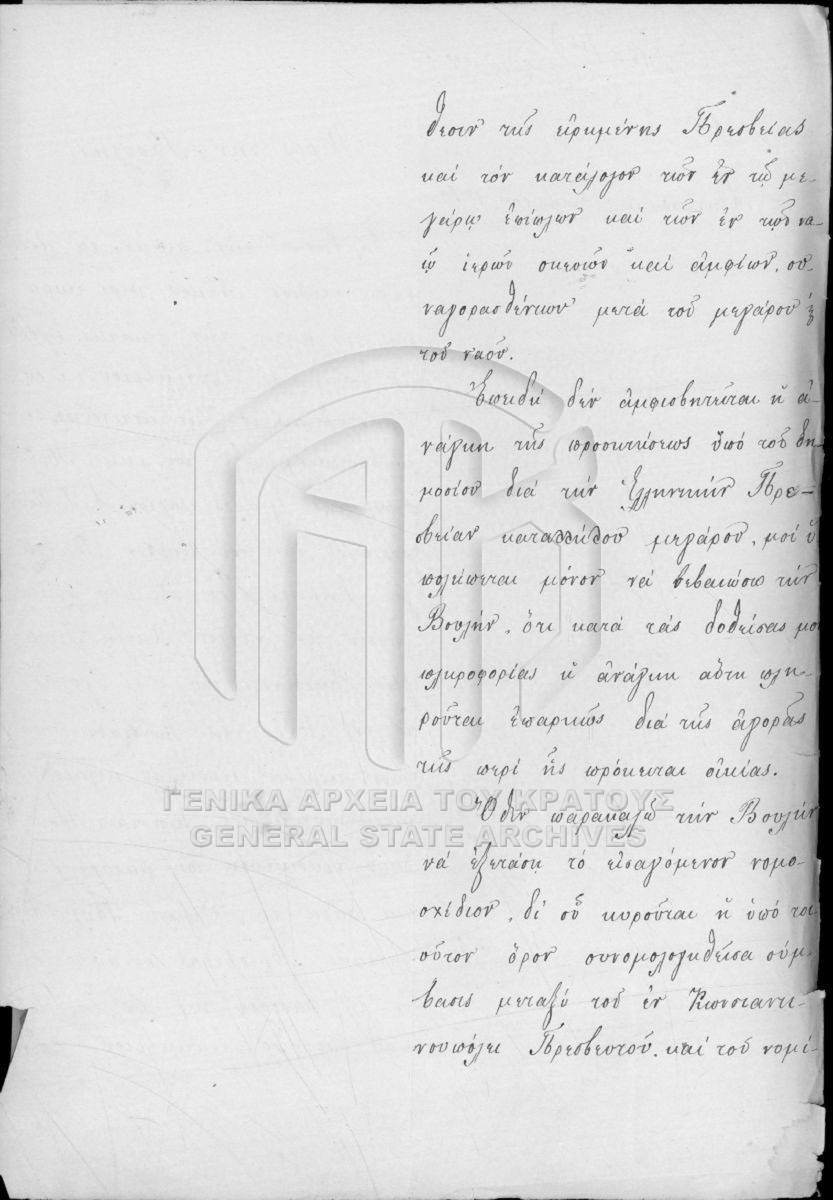 θεσιν τῆς εἰρημένης Πρεσβείας
καὶ τὸν κατάλογον τῶν ἐν τῷ με-
γάρῳ ἐπίπλων καὶ τῶν ἐν τῷ να-
ῷ ἱερῶν σκευῶν καὶ ἀμφίων, συ-
ναγορασθέντων μετὰ τοῦ μεγάρου ϗ
τοῦ ναοῦ.
Ἐπειδὴ δὲν ἀμφισβητεῖται ἡ ἀ-
νάγκη τῆς προσκτήσεως ὑπὸ τοῦ δη
μοσίου διὰ τὴν Ἑλληνικὴν Πρε-
σβείαν καταλλήλου μεγάρου, μοὶ ὑ
πολείπεται μόνον νὰ βεβαιώσω τὴν
Βουλὴν, ὅτι κατὰ τὰς δοθείσας μοι
πληροφορίας ἡ ἀνάγκη αὕτη πλη-
ροῦται ἐπαρκῶς διὰ τῆς ἀγορᾶς
τῆς περὶ ἧς πρόκειται οἰκίας.
ΓΕΝΙΚΑ ΑΡΧΕΙΑ ΤΟΥ ΚΡΑΤΟΥΣ
Ὅθεν παρακαλῶ τὴν Βουλὴν
GENERAL STATE ARCHIVES
νὰ ἐξετάσῃ τὸ εἰσαγόμενον νομο-
σχέδιον, δι' οὗ κυροῦται ἡ ὑπὸ τοι
οῦτον ὅρον συνομολογηθεῖσα σύμ-
βασις μεταξὺ τοῦ ἐν Κωνσταντι-
νουπόλει Πρεσβευτοῦ, καὶ τοῦ νομί-